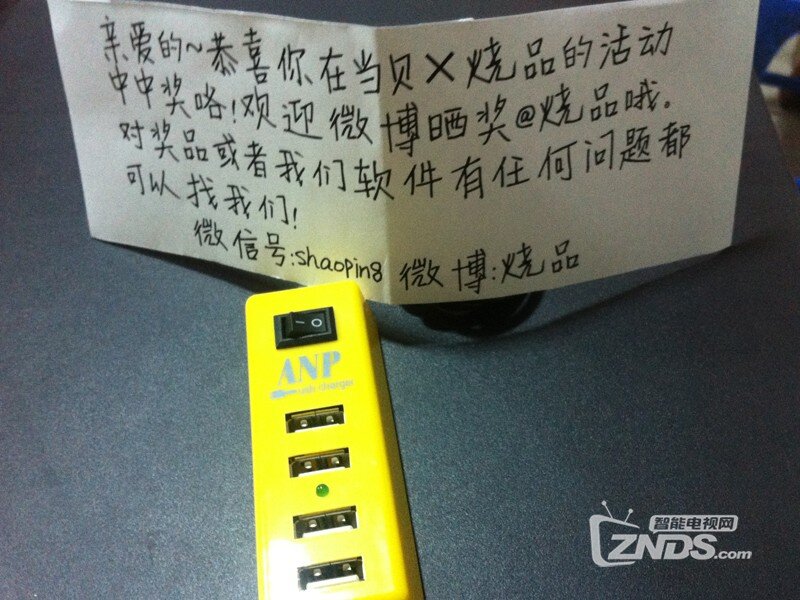 亲爱的~恭喜你在当贝×烧品的活动
中中奖咯!欢迎微博晒奖@烧品哦。
对奖品或者我们软件有任何问题都
可以找我们!
微信号:shaopin8 微博:烧品
ANP
usb Charger
智能电视网
ZNDS.com